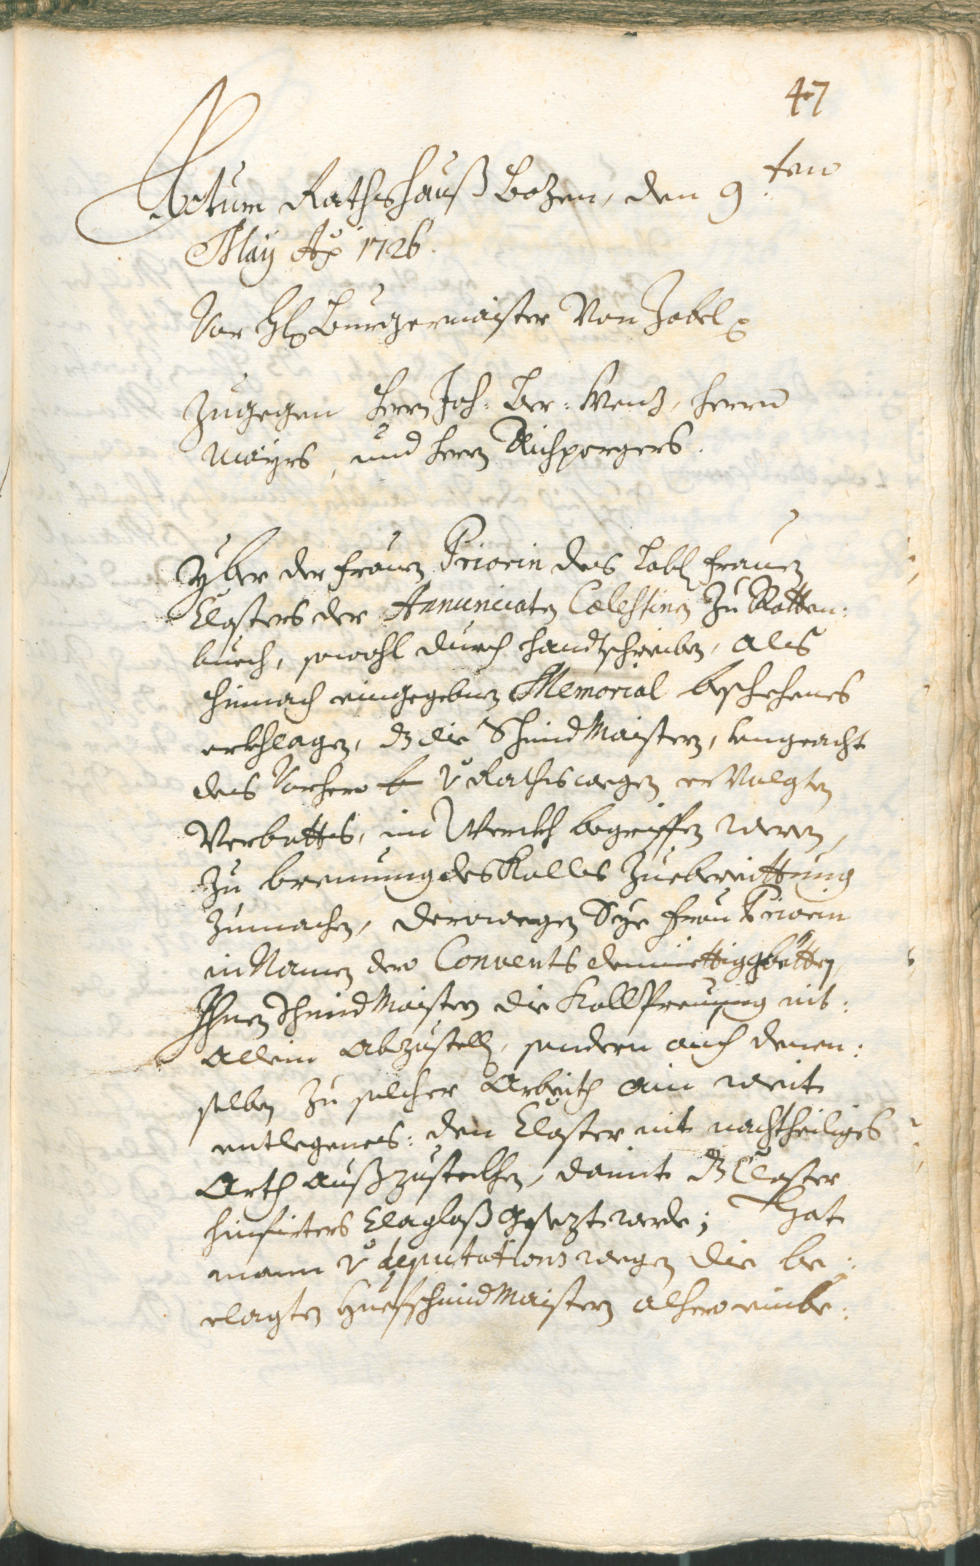 47
Actum Rathshauß Bozen, den 9ten
May Ao 1726.
Vor H: Burgermaister Von Zobel
Zugegen Herrn Joh: Ber: Wenz, Herrn
Mayrs, und Herrn Aichpergers.
Yber der Frauen Priorin des Löbl: Frauen
Closters der Annunciaten Cœlestinen zu Rotten:
buech, sowohl durch Handtschreiben, als
hinnach eingegebnen Memorial beschehenes
erkhlagen, dz die SchmidMaistern, ungeacht
des Vorhero v Rathswegen ervolgten
Verbotts, im Werkh begriffen weren,
zu brennung des Kolles Zuebereittung
zumachen, derowegen Sye Frau Priorin
in Namen dero Convents demiettig gebetten
Ihnen SchmidMaistern die Kollprennung nit:
allein abzustellen, sondern auch denen:
selben zu solcher Arbeith ain weit
entlegenes: den Closter nit nachtheiliges
Orth außzustekhen, damit dz Closter
hinfirters Claglosß gesezt werde; Hat
mann v deputations wegen die be:
clagten HuefschmidMaistern alhero einbe: